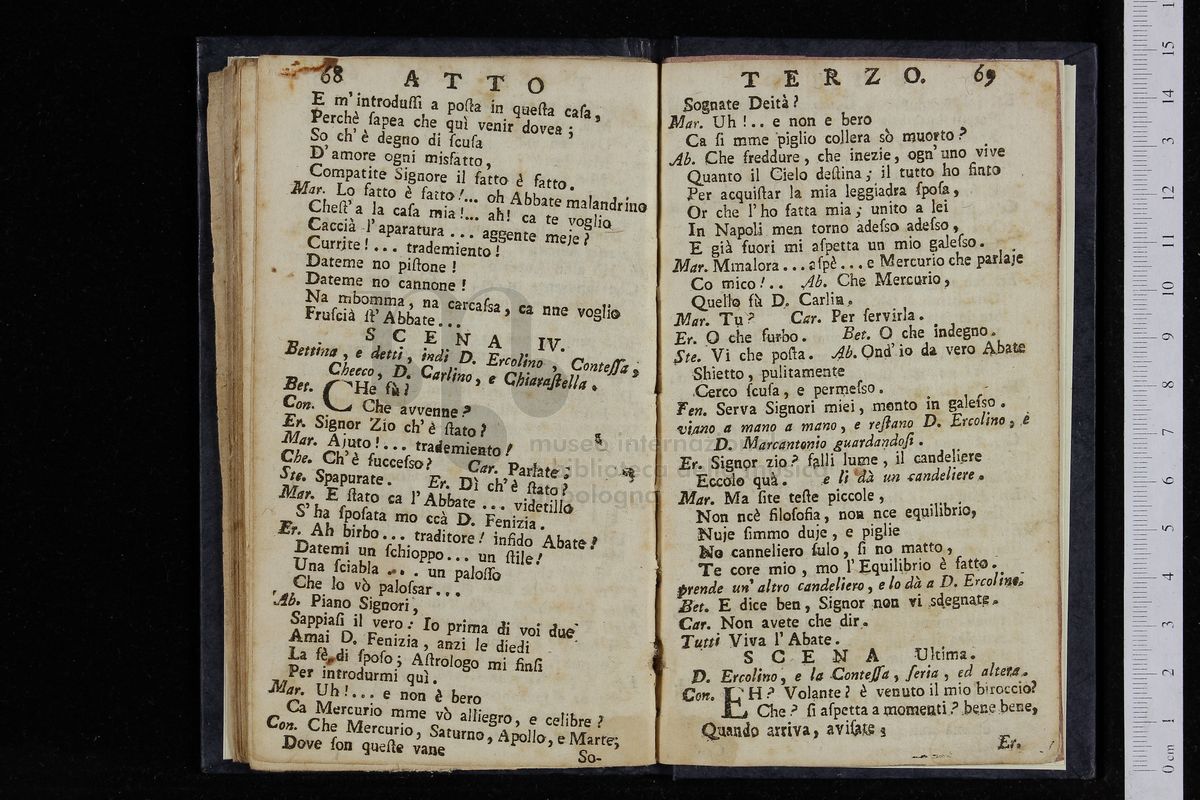 68 ATTO
E m'introduſſi a poſta in queſta caſa,
Perchè ſapea che quì venir dovea;
So ch'è degno di ſcuſa
D'amore ogni misfatto,
Compatite Signore il fatto è fatto.
Mar. Lo fatto è fatto!... oh Abbate malandrino
Cheſt'a la caſa mia!... ah! ca te voglio
Caccià l'aparatura ... aggente meje?
Currite!... trademiento!
Dateme no piſtone!
Dateme no cannone!
Na mbomma, na carcaſsa, ca nne voglio
Fruſcià ſt'Abbate...
SCENA IV.
Bettina, e detti, indi D. Ercolino, Conteſſa,
Checco, D. Carlino, e Chiaraſtella.
Bet. CHe fù?
Con. Che avvenne?
Er. Signor Zio ch'è ſtato?
Mar. Ajuto!... trademiento!
Che. Ch'è ſucceſso? Car. Parlate;
Ste. Spapurate. Er. Dì ch'è ſtato?
Mar. E ſtato ca l'Abbate ... videtillo
S'ha ſpoſata mo ccà D. Fenizia.
Er. Ah birbo... traditore! infido Abate!
Datemi un ſchioppo... un ſtile!
Una ſciabla ... un paloſſo
Che lo vò paloſsar...
Ab. Piano Signori,
Sappiaſi il vero: Io prima di voi due
Amai D. Fenizia, anzi le diedi
La fè di ſpoſo; Aſtrologo mi finſi
Per introdurmi quì.
Mar. Uh!... e non è bero
Ca Mercurio mme vò alliegro, e celibre?
Con. Che Mercurio, Saturno, Apollo, e Marte;
Dove ſon queſte vane
So-
TERZO. 69
Sognate Deità?
Mar. Uh!.. e non e bero
Ca ſi mme piglio collera sò muorto?
Ab. Che freddure, che inezie, ogn'uno vive
Quanto il Cielo deſtina; il tutto ho finto
Per acquiſtar la mia leggiadra ſpoſa,
Or che l'ho fatta mia; unito a lei
In Napoli men torno adeſso adeſso,
E già fuori mi aſpetta un mio galeſso.
Mar. Mmalora...aſpè...e Mercurio che parlaje
Co mico!.. Ab. Che Mercurio,
Quello fù D. Carlin.
Mar. Tu? Car. Per ſervirla.
Er. O che furbo. Bet. O che indegno.
Ste. Vi che poſta. Ab. Ond'io da vero Abate
Shietto, pulitamente
Cerco ſcuſa, e permeſso.
Fen. Serva Signori miei, monto in galeſso.
viano a mano a mano, e reſtano D. Ercolino, è
D. Marcantonio guardandoſi.
Er. Signor zio? falli lume, il candeliere
Eccolo quà. e li dà un candeliere.
Mar. Ma ſite teſte piccole,
Non ncè filoſofia, non nce equilibrio,
Nuje ſimmo duje, e piglie
No canneliero ſulo, ſi no matto,
Te core mio, mo l'Equilibrio è fatto.
prende un'altro candeliero, e lo dà a D. Ercolino.
Bet. E dice ben, Signor non vi sdegnate.
Car. Non avete che dir.
Tutti Viva l'Abate.
SCENA Ultima.
D. Ercolino, e la Conteſſa, ſeria, ed altera.
Con. EH? Volante? è venuto il mio biroccio?
Che? ſi aſpetta a momenti? bene bene,
Quando arriva, aviſate;
Er.
museo internazionale
biblioteca della musica
bologna